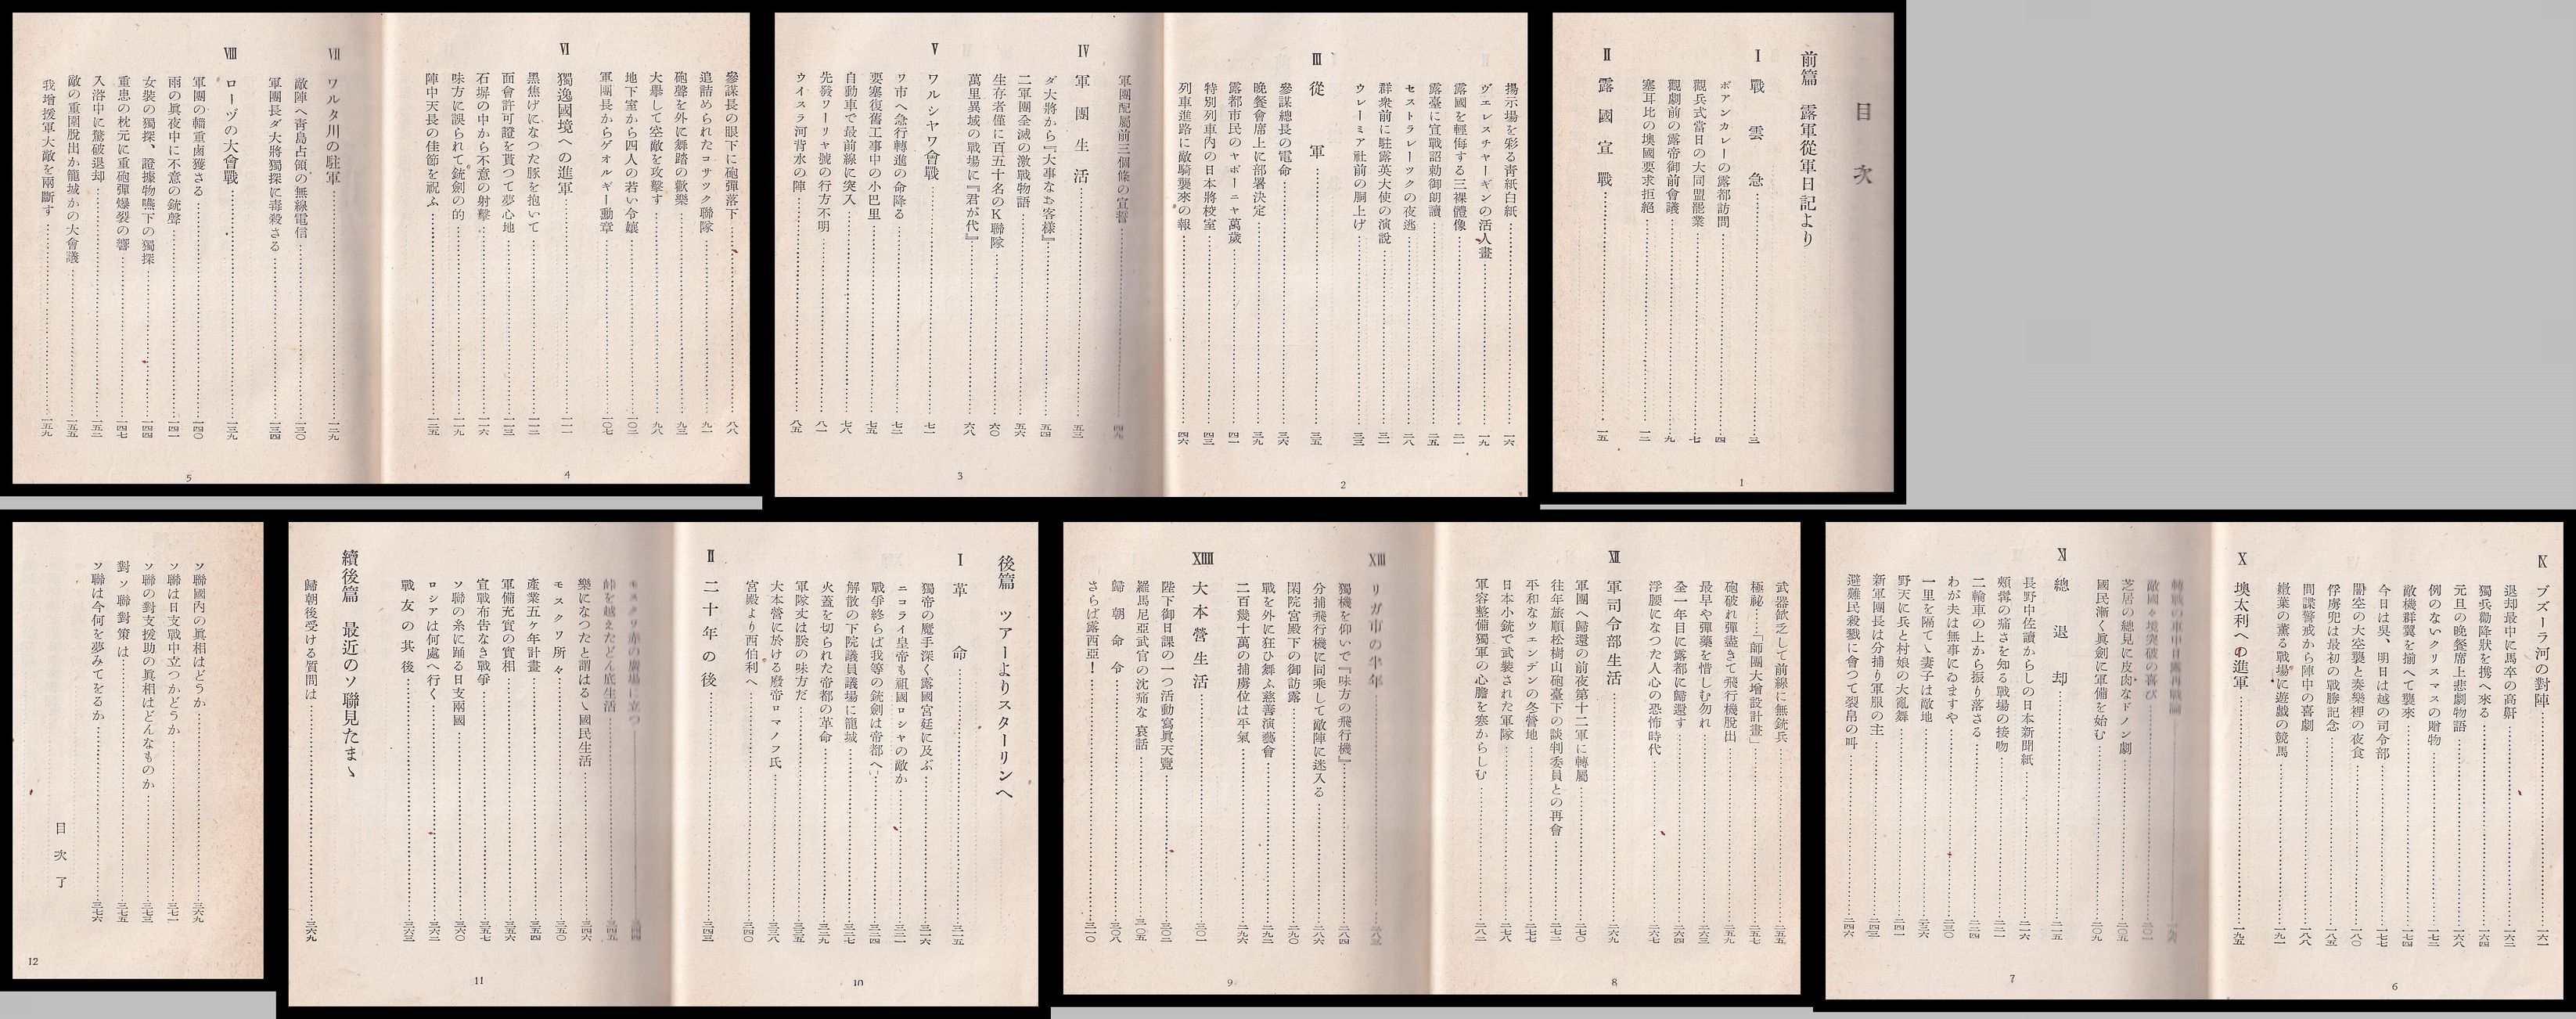 目次
前篇 露軍從軍日記より
I 戰雲急……三
ポアンカレーの露都訪問……四
觀兵式當日の大同盟罷業……七
觀劇前の露帝御前會議……九
塞耳比の墺國要求拒絶……一二
II 露國宣戰……一五
1
揚示場を彩る靑紙白紙……一六
ヴエレスチャーギンの活人畫……一九
露國を輕侮する三裸體像……二一
露臺に宣戰詔勅御朗讀……二五
セストラレーツクの夜逃……二八
群衆前に駐露英大使の演說……三一
ウレーミア社前の胴上げ……三三
III 從軍……三五
參謀總長の電命……三六
晚餐會席上に部署決定……三九
露都市民のヤポーニャ萬歲……四一
特別列車内の日本將校室……四三
列車進路に敵騎襲來の報……四六
2
軍團配屬前三個條の宣誓……四九
IV 軍團生活……五三
ダ大將から『大事なお客樣』……五四
二軍團全滅の激戰物語……五六
生存者僅に百五十名のK聯隊……六〇
萬里異域の戰場に『君が代』……六八
V ワルシヤワ會戰……七一
ワ市へ急行轉進の命降る……七二
要塞復舊工事中の小巴里……七五
自動車で最前線に突入……七八
先發ワーリャ號の行方不明……八一
ウイスラ河背水の陣……八五
3
參謀長の眼下に砲彈落下……八八
追詰められたコサック聯隊……九一
砲聲を外に舞踏の歡樂……九三
大擧して空敵を攻擊す……九八
地下室から四人の若い令孃……一〇二
軍團長からゲオルギー勳章……一〇七
VI 獨逸國境への進軍……一一一
黑焦げになつた豚を抱いて……一一二
面會許可證を貰つて夢心地……一一三
石塀の中から不意の射擊……一一六
味方に誤られて銃劍の的……一一九
陣中天長の佳節を祝ふ……一二五
4
VII ワルタ川の駐軍……一二九
敵陣へ靑島占領の無線電信……一三〇
軍團長ダ大將獨探に毒殺さる……一三四
VIII ローヅの大會戰……一三九
軍團の輜重鹵獲さる……一四〇
雨の眞夜中に不意の銃聲……一四一
女裝の獨探、證據物嚥下の獨探……一四四
重患の枕元に重砲彈爆裂の響……一四七
入浴中に驚破退却……一五二
敵の重圍脫出か籠城かの大會議……一五五
我增援軍大敵を兩斷す……一五九
5
IX ブズーラ河の對陣……一六一
退却最中に馬卒の高鼾……一六二
獨兵勸降狀を携へ來る……一六四
元旦の晚餐席上悲劇物語……一六八
例のないクリスマスの贈物……一七二
敵機群翼を揃へて襲來……一七四
今日は吳、明日は越の司令部……一七七
闇空の大空襲と奏樂裡の夜食……一八〇
俘虜兜は最初の戰勝記念……一八五
間諜警戒から陣中の喜劇……一八八
橄葉の薰る戰場に遊戲の競馬……一九一
X 墺太利への進軍……一九五
6
轉戰の車中日露再戰論
敵國々境突破の喜び……二〇一
芝居の總見に皮肉なドノン劇……二〇五
國民漸く眞劍に軍備を始む……二〇九
XI 總退却……二一五
長野中佐讀からしの日本新聞紙……二一六
頰髯の痛さを知る戰場の接吻……二二一
二輪車の上から振り落さる……二二四
わが夫は無事にゐますや……二三〇
一里を隔てゝ妻子は敵地……二三六
野天に兵と村娘の大亂舞……二四一
新軍團長は分捕り軍服の主……二四三
避難民殺戮に會つて裂帛の叫……二四六
7
武器缺乏して前線に無銃兵……二五五
極祕…「師團大增設計畫」……二五七
砲破れ彈盡きて飛行機脫出……二五九
最早や彈藥を惜しむ勿れ……二六三
全一年目に露都に歸還す……二六四
浮腰になつた人心の恐怖時代……二六七
XII 軍司令部生活……二六九
軍團へ歸還の前夜第十二軍に轉屬……二七〇
往年旅順松樹山砲臺下の談判委員との再會……二七二
平和なウェンデンの冬營地……二七七
日本小銃で武裝された軍隊……二七八
軍容整備獨軍の心膽を寒からしむ……二八二
8
XIII リガ市の半年……二八三
獨機を仰いで『味方の飛行機』……二八四
分捕飛行機に同乘して敵陣に迷入る……二八六
閑院宮殿下の御訪露……二九〇
戰を外に狂ひ舞ふ慈善演藝會……二九二
二百幾十萬の捕虜位は平氣……二九六
XIIII 大本營生活……三〇一
陛下御日課の一つ活動寫眞天覽……三〇二
羅馬尼亞武官の沈痛な哀話……三〇五
歸朝命令……三〇八
さらば露西亞!……三一〇
9
後篇 ツアーよりスターリンへ
I 革命……三一五
獨帝の魔手深く露國宮廷に及ぶ……三一六
ニコライ皇帝も祖國ロシャの敵か……三二一
戰爭終らば我等の銃劍は帝都へ……三二四
解散の下院議員議場に籠城……三二七
火蓋を切られた帝都の革命……三二九
軍隊丈は朕の味方だ……三三五
大本營に於ける廢帝ロマノフ氏……三三八
宮殿より西伯利へ……三四〇
II 二十年の後……三四三
10
モスクワ赤の廣場に立つ……三四四
峠を越えたどん底生活……三四五
樂になつたと謂はるゝ國民生活……三四六
モスクワ所々……三五〇
產業五ヶ年計畫……三五四
軍備充實の實相……三五六
宣戰布告なき戰爭……三五七
ソ聯の糸に踊る日支兩國……三六〇
ロシアは何處へ行く……三六二
戰友の其後……三六三
續後篇 最近のソ聯見たまゝ
歸朝後受ける質問は……三六九
11
ソ聯國内の眞相はどうか……三六九
ソ聯は日支戰中立つかどうか……三七一
ソ聯の對支援助の眞相はどんなものか……三七三
對ソ聯對策は……三七五
ソ聯は今何を夢みてをるか……三七六
目次了
12